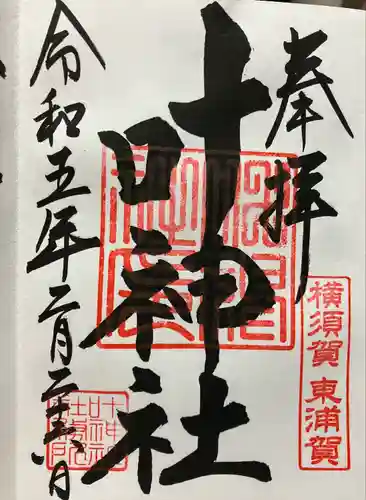 奉拝
横須賀 東浦賀
叶神社
令和五年二月二十六日